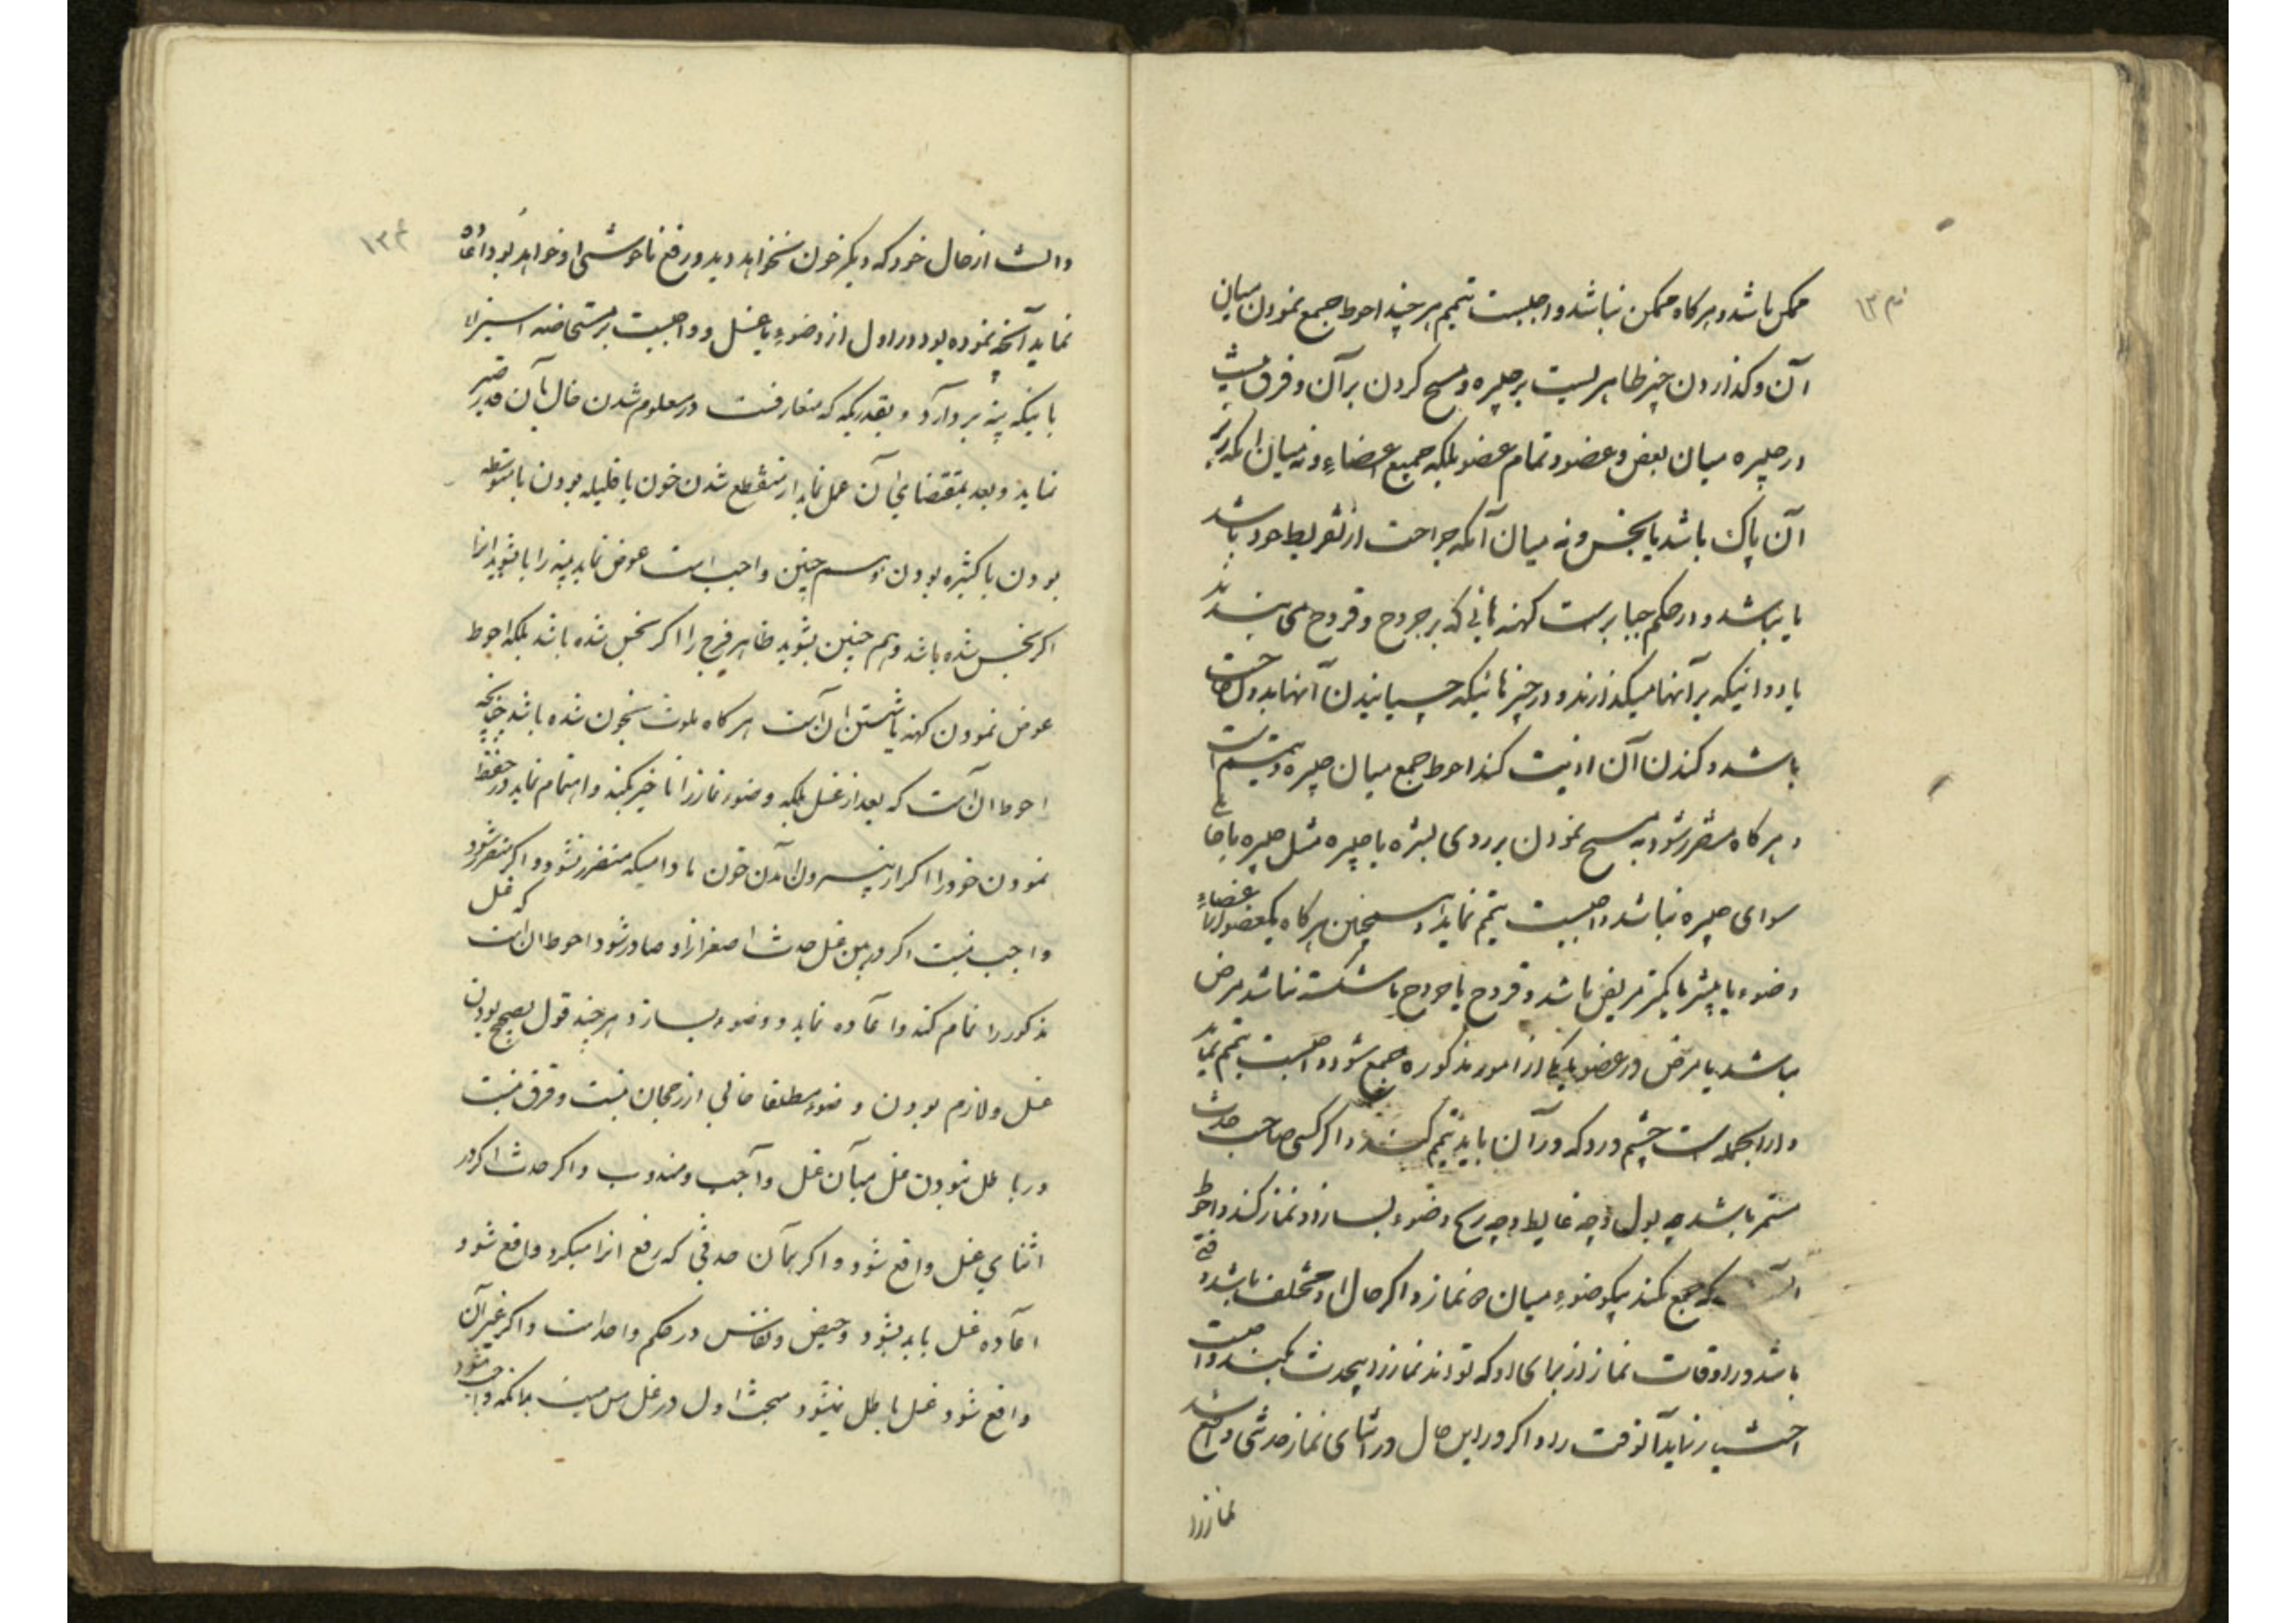 ممکن باشد و هرکاه ممکن نباشد واجبست تیمم هر چند احوط جمع نمودن میان
آن و کذاردن چیز طاهریست بر جبیره و مسح کردن بر آن و فرق نیست
در جبیره میان بعض عضو و تمام عضو بلکه جمیع اعضاء و نه میان آنکه زیر
آن پاک باشد یا نجس و نه میان آنکه جراحت از تفریط خود باشد
یا نباشد و در حکم جبایر است کهنه هائی که بر جروح و قروح می بندند
یا دوائیکه بر آنها میکذارند و در چیزهائیکه چسبانیدن آنها بدون حاجت
باشد و کندن آن اذیت کند احوط جمع میان جبیره و تیمم است
و هر کاه متضرر شود به مسح نمودن بر روی بشره یا جبیره مثل جبیره یا جای
سوای جبیره نباشد واجبست تیمم نماید و همچنین هر کاه یکعضو از اعضاء
وضوء یا بیشتر یا کمتر مریض باشد و قروح یا جروح یا شکسته نباشد مرض
باشد یا مرض در عضو با یکی از امور مذکوره جمع شود واجبست تیمم نماید
و از آنجمله است چشم درد که در آن باید تیمم کنند و اکر کسی صاحب حدث
مستمر باشد چه بول و چه غایط و چه ریح وضوء بسازد و نماز کند و احوط
آنست که جمع نکند بیکوضوء میان دو نماز و اکر حال او مختلف باشد وقتی
باشد در اوقات نماز از برای او که تواند نماز را بیحدث بکند واجبست
اختیار نماید آنوقت را و اکر در این حال در اثنای نماز حدثی واقع شد
نماز را
۱۳۴
دانست از حال خود که دیکر خون نخواهد دید و رفع ناخوشی او خواهد بود اعاده
نماید آنچه نموده بود در اول از وضوء یا غسل و واجبست بر مستحاضه استبراء
باینکه پنبه بردارد و بقدریکه که متعارفست در معلوم شدن حال بآن قدر صبر
نماید و بعد بمقتضای آن عمل نماید از منقطع شدن خون یا قلیله بودن یا متوسطه
بودن یا کثیره بودن و همچنین واجب است عوض نماید پنبه را یا بشوید انرا
اکر نجس شده باشد و هم چنین بشوید ظاهر فرج را اکر نجس شده باشد بلکه احوط
عوض نمودن کهنه یا شستن ان آنست هر کاه ملوث بخون شده باشد چنانچه
احوط ان آنست که بعد از غسل بلکه وضوء نماز را تاخیر نکند و اهتمام نماید در حفظ
نمودن خود را اکر از بیرون آمدن خون مادامیکه متضرر نشود و اکر متضرر شود
واجب نیست اکر در بین غسل حدث اصغر از او صادر شود احوط ان است که غسل
مذکور را تمام کند و اعاده نماید و وضوء بسازد هر چند قول بصحیح بودن
غسل و لازم بودن وضوء مطلقا خالی از رجحان نیست و فرق نیست
در باطل نبودن غسل میان غسل واجب و مندوب و اکر حدث اکبر در
اثنای غسل واقع شود و اکر همان حدثی که رفع انرا میکرد واقع شود
اعاده غسل باید بشود و حیض و نفاس در حکم واحد است و اکر غیر آن
واقع شود غسل باطل نمیشود مبحث اول در غسل مس میت بدانکه واجب میشود